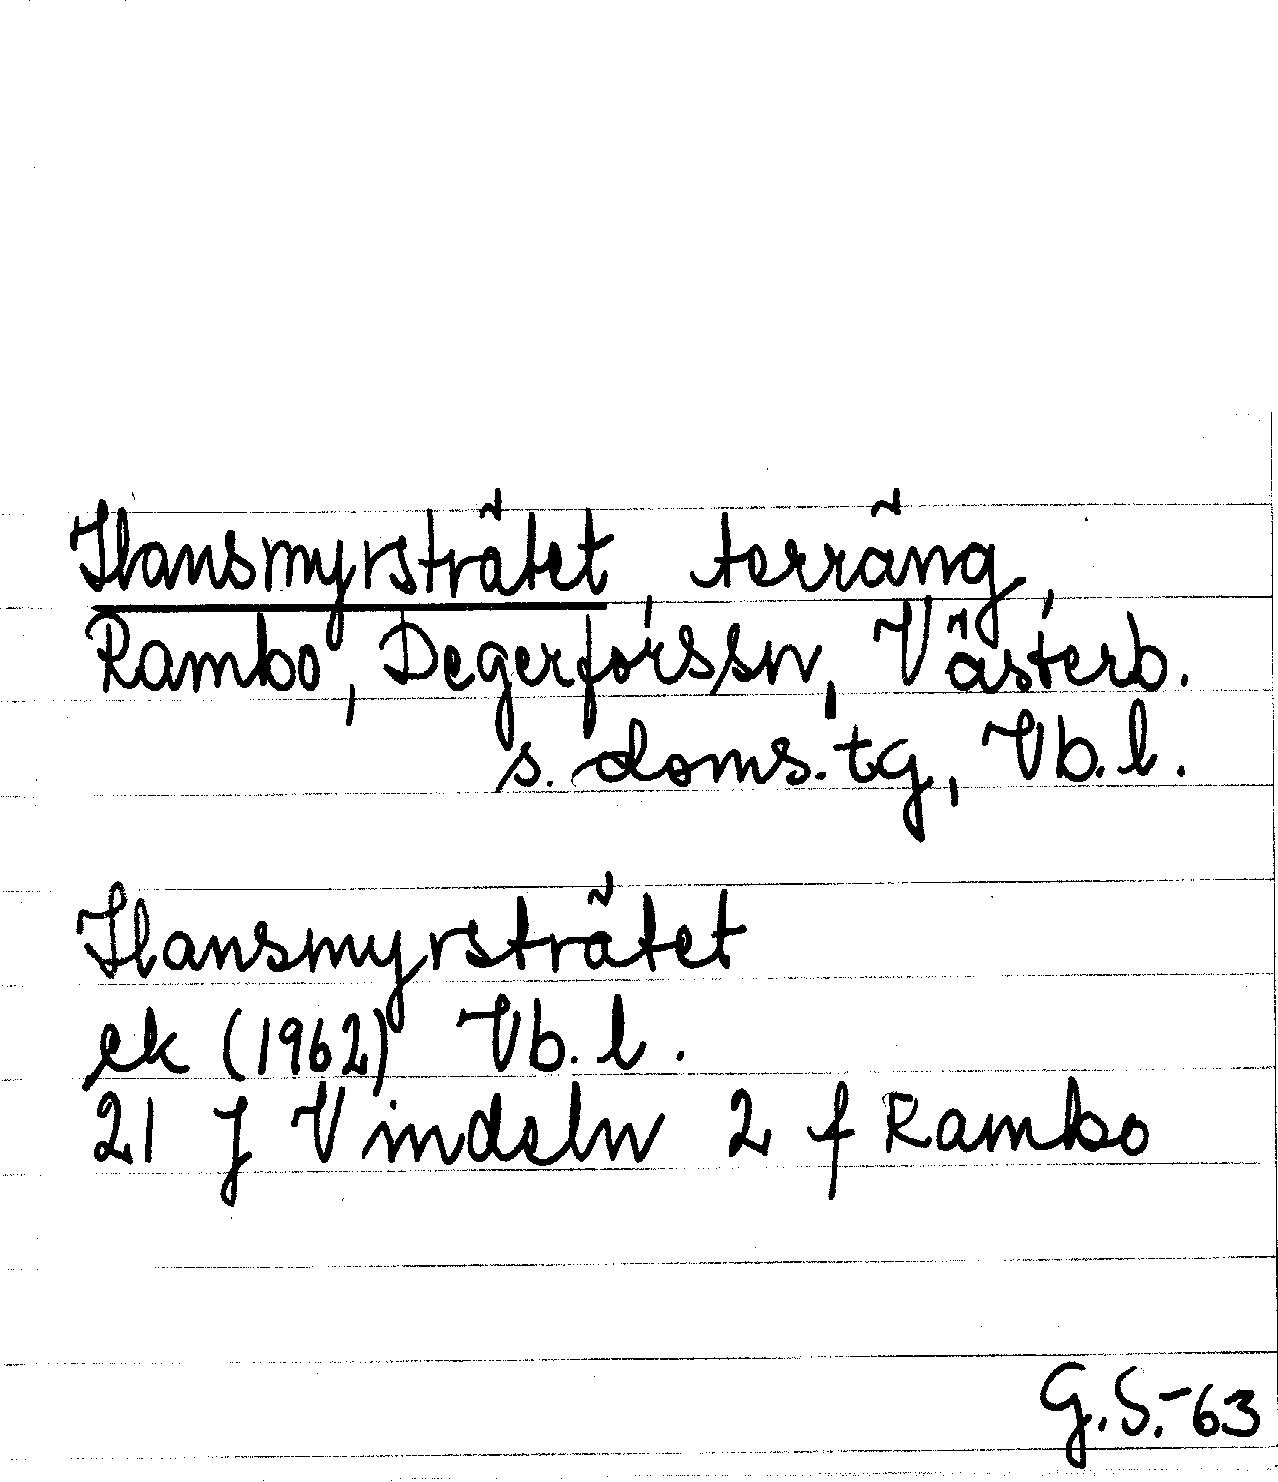 Hansmyrsträtet, terräng,
Rambo, Degerforssn, Västerb.
s. doms. tg, Vb. l.
Hansmyrsträtet
ek (1962) Vb. l.
21 J Vindeln 2 f Rambo
G.S.-63